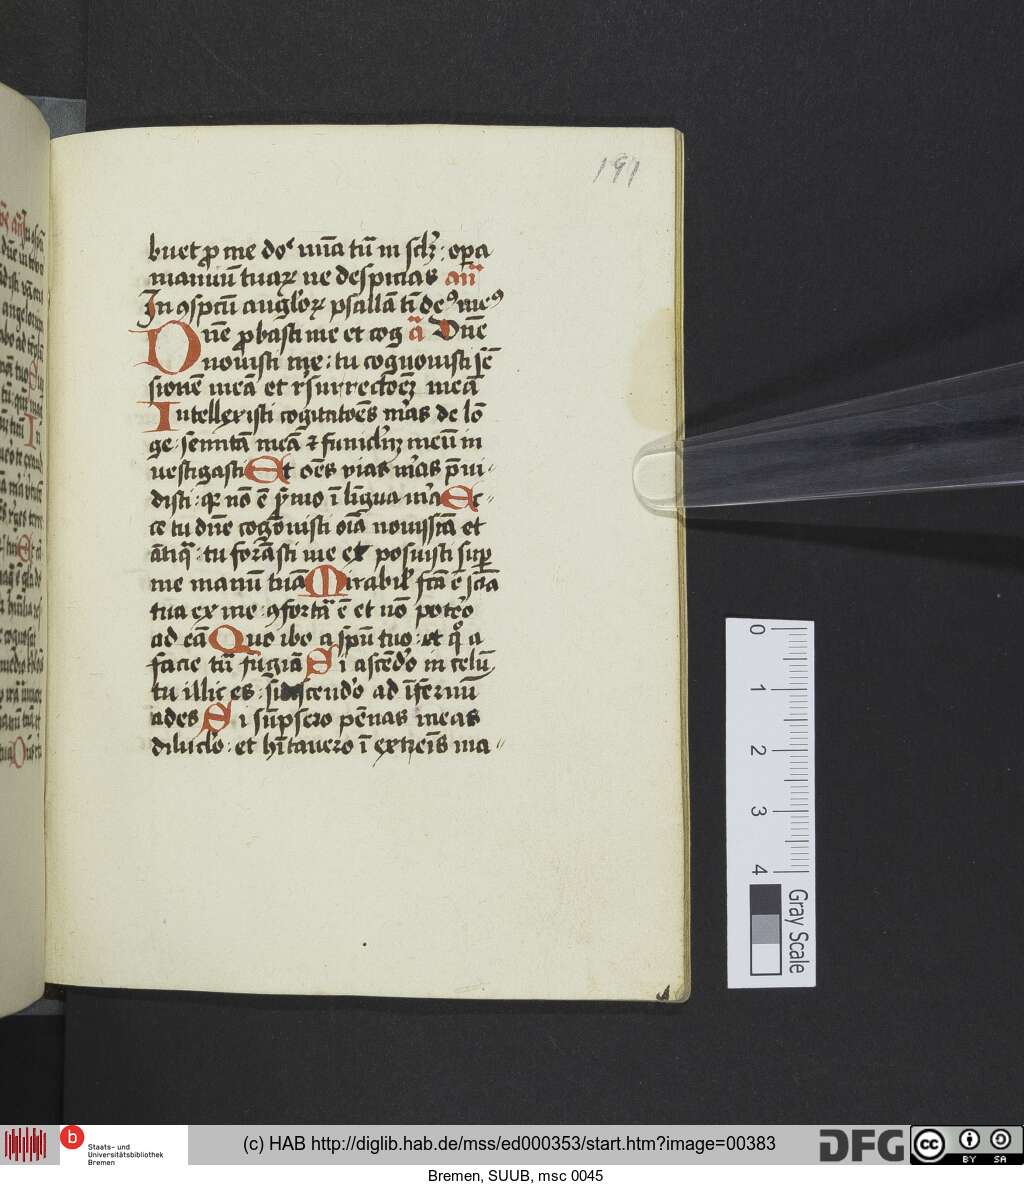 191
buet ꝓ me do' mīa tū in sclꝫ : oꝑa
manuū tuaꝝ ne despicias an̄
In ꝯspcū angl'oꝝ psallā ti deꝰ meꝰ
Dne ꝓbasti me et cog a Dne
nouisti me : tu cognouisti sē
sionē meā et r'surrectoēꝫ meā
Intellexisti cogitatoēs mās de lō
ge : semitā meā ⁊ funiclꝫ meū in
uestigasti Et oēs vias mās p̄ui
disti : qꝛ nō ē sermo ī ligua ma Ec
ce tu dne cog̃ouisti oīa nouissīa et
ātiq̄ : tu formasti me et posuisti suꝑ
me manū tuā Mirabil' fcā ē sciā
tua ex me : ꝯfortā ē et nō pot'o
ad eā Quo ibo a spū tuo : et q° a
facie tū fugiā Si ascēd'o in celū
tu illic es : si descendo ad īfernū
ades Si sūpsero pēnas meas
dilucl'o : et hītauero ī extreīs ma
0
1
2
3
4
Gray Scale
b
Staats- und
Universitätsbibliothek
Bremen
(c) HAB http://diglib.hab.de/mss/ed000353/start.htm?image=00383
DFG
cc
BY SA
Bremen, SUUB, msc 0045